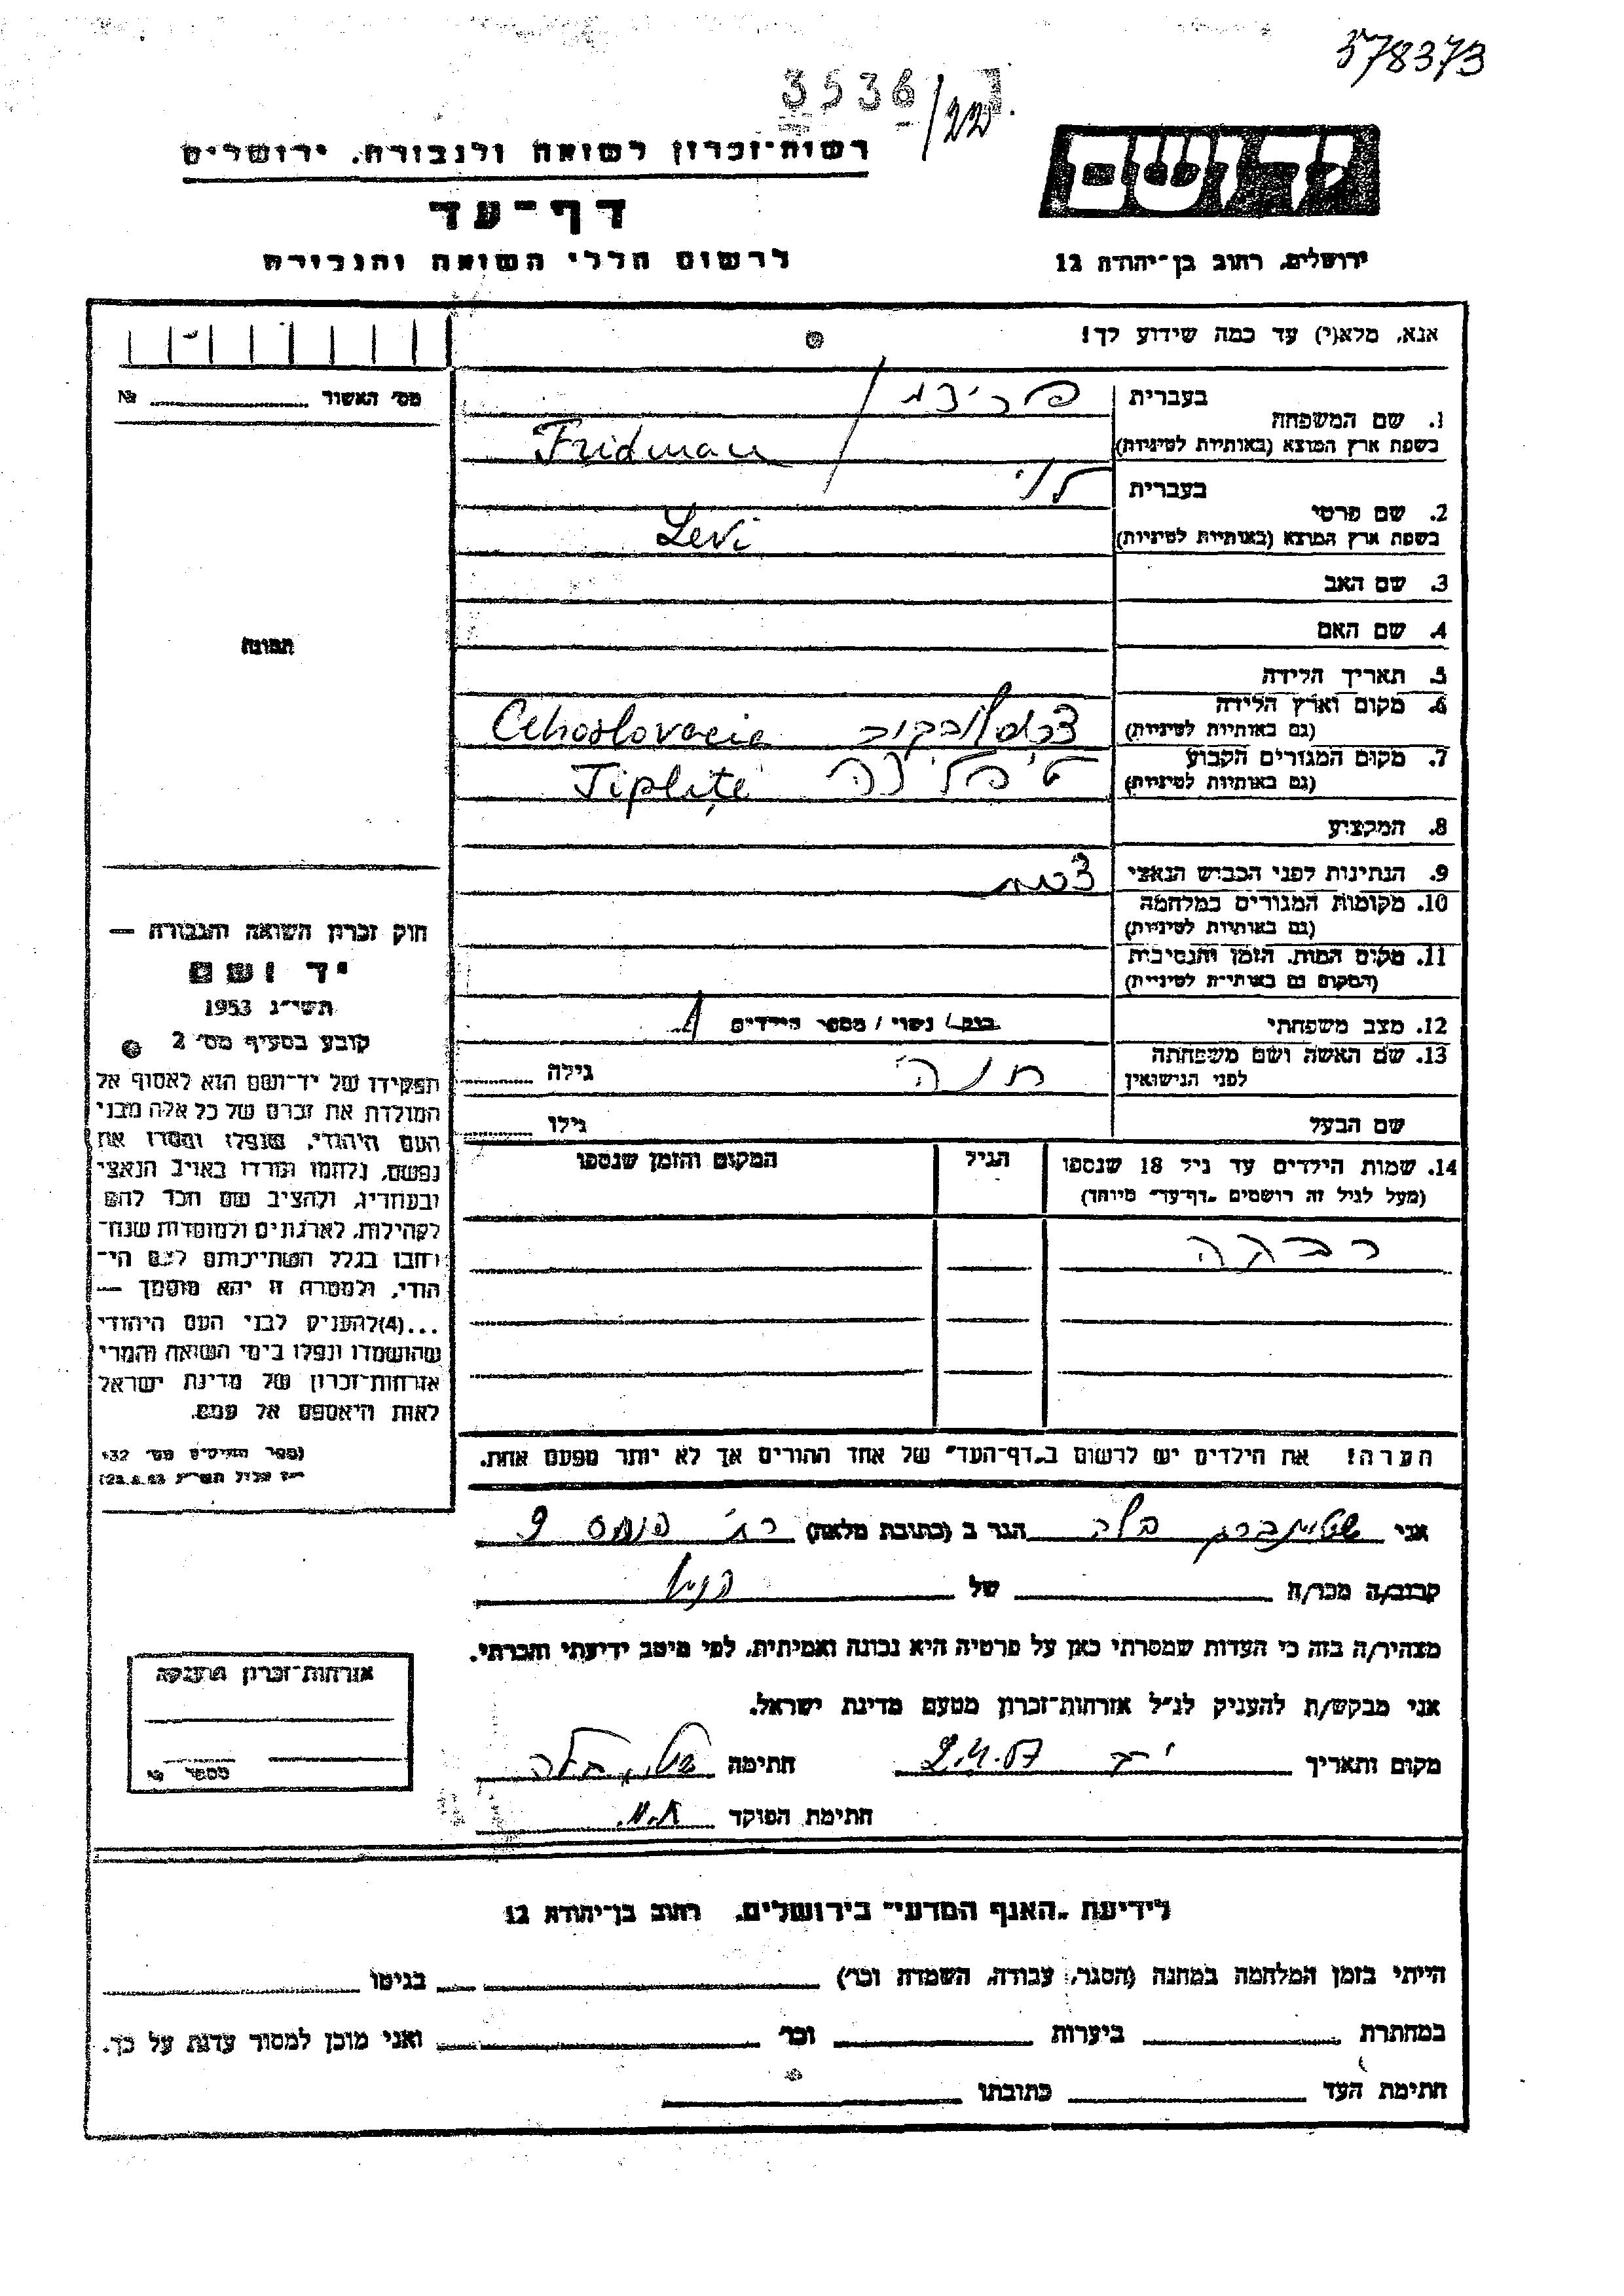 378373
3536/22
רשות־זכרון לשואה ולגבורה, ירושלים
יד ושם
דף־עד
לרשום חללי השואה והגבורה
ירושלים, רחוב בן־יהודה 12
אנא, מלא(י) עד כמה שידוע לך!
מס׳ האשור № 
1. שם המשפחה
בעברית
בשפת ארץ המוצא (באותיות לטיניות) Fridman
2. שם פרטי
בעברית לוי
בשפת ארץ המוצא (באותיות לטיניות) Levi
3. שם האב
4. שם האם
תמונה
5. תאריך הלידה
6. מקום וארץ הלידה
(גם באותיות לטיניות) Cehoslovacie
7. מקום המגורים הקבוע
(גם באותיות לטיניות) Tiplițe
8. המקצוע
9. הנתינות לפני הכבוש הנאצי
10. מקומות המגורים במלחמה
(גם באותיות לטיניות)
11. מקום המות, הזמן והנסיבות
(המקום גם באותיות לטיניות)
12. מצב משפחתי רווק / נשוי / מספר הילדים 1
13. שם האשה ושם משפחתה חנה גילה
לפני הנישואין
שם הבעל גילו
14. שמות הילדים עד גיל 18 שנספו הגיל המקום והזמן שנספו
(מעל לגיל זה רושמים „דף־עד״ מיוחד)
רבקה
הערה! את הילדים יש לרשום ב„דף־העד״ של אחד ההורים אך לא יותר מפעם אחת.
חוק זכרון השואה והגבורה —
יד ושם
תשי״ג 1953
קובע בסעיף מס׳ 2
תפקידו של יד־ושם הוא לאסוף אל
המולדת את זכרם של כל אלה מבני
העם היהודי, שנפלו ומסרו את
נפשם, נלחמו ומרדו באויב הנאצי
ובעוזריו, ולהציב שם וזכר להם
לקהילות, לארגונים ולמוסדות שנח־
רחבו בגלל השתייכותם לעם הי־
הודי, ולמטרה זו יהא מוסמך —
...(4) להעניק לבני העם היהודי
שהושמדו ונפלו בימי השואה והמרי
אזרחות־זכרון של מדינת ישראל
לאות היאספם אל עמם.
(ספר החוקים מס׳ 132
אני שטיינברג בלה הגר ב (כתובת מלאה) 9
קרוב/ה מכר/ה של
מצהיר/ה בזה כי העדות שמסרתי כאן על פרטיה היא נכונה ואמיתית, לפי מיטב ידיעתי והכרתי.
אני מבקש/ת להעניק לנ״ל אזרחות־זכרון מטעם מדינת ישראל.
מקום ותאריך 2.4.57 חתימה
חתימת הפוקד
אזרחות־זכרון הוענקה
מספר №
לידיעת „האגף המדעי״ בירושלים, רחוב בן־יהודה 12
הייתי בזמן המלחמה במחנה (הסגר, עבודה, השמדה וכו׳) בגיטו
במחתרת ביערות וכו׳ ואני מוכן למסור עדות על כך.
חתימת העד כתובתו